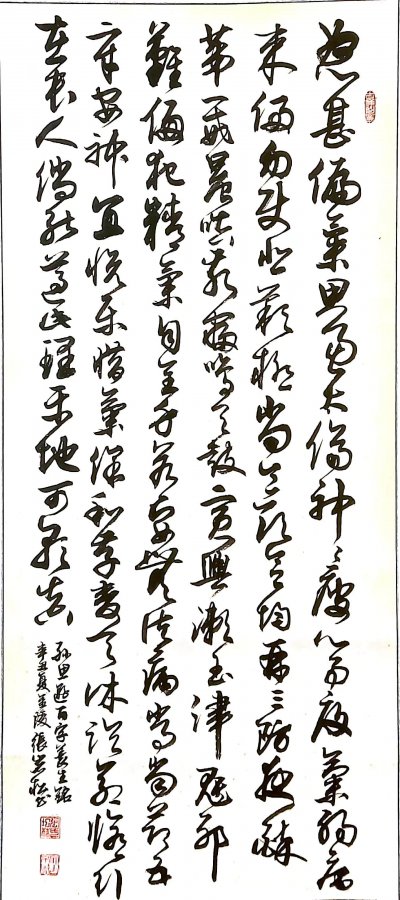 怒甚偏氣思多太傷神〻疲心易役氣弱病
来侵勿使悲歡極當令飲食均再三防夜醉
第一戒晨嗔亥寢鳴天鼓寅興漱玉津妖邪
難侵犯精氣自全身若要無諸病常當節五
辛安神宜悦樂惜氣保和壽夭休論命修行
在本人倘能遵此理平地可朝真
孫思邈百字養生銘
辛丑夏金陵張書